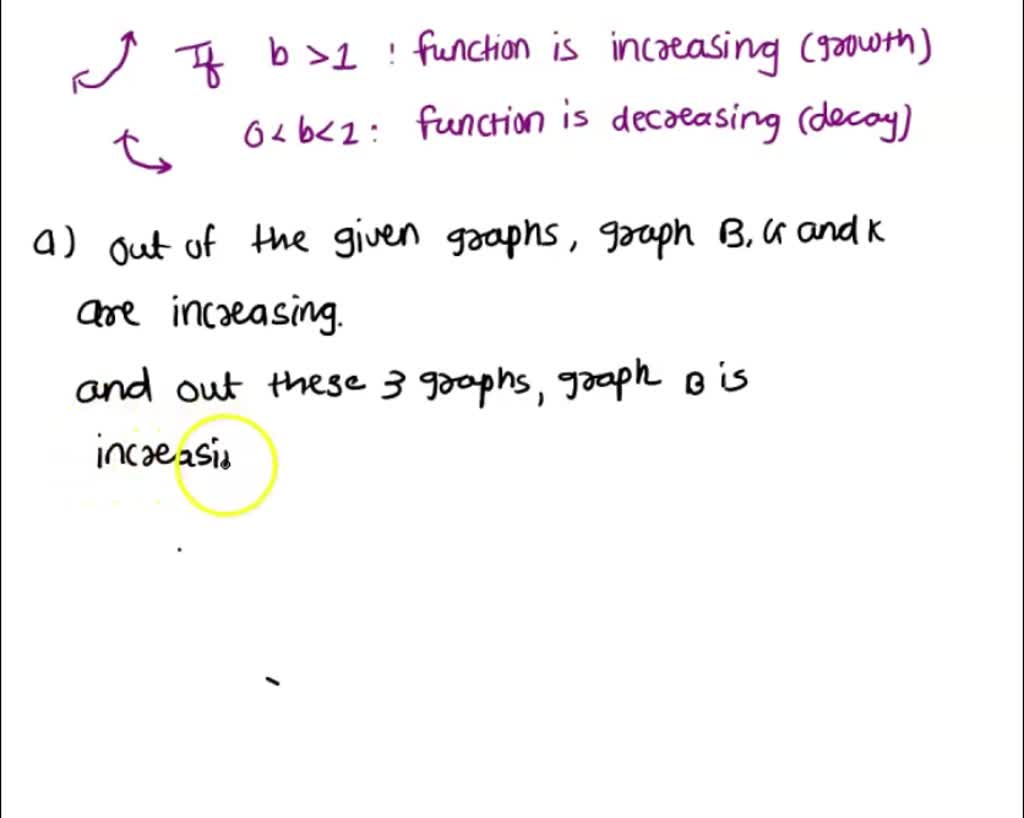 If b > 1 : function is increasing (growth)
0 < b < 1 : function is decreasing (decay)
a) out of the given graphs, graph B, G and K
are increasing.
and out these 3 graphs, graph B is
increasi